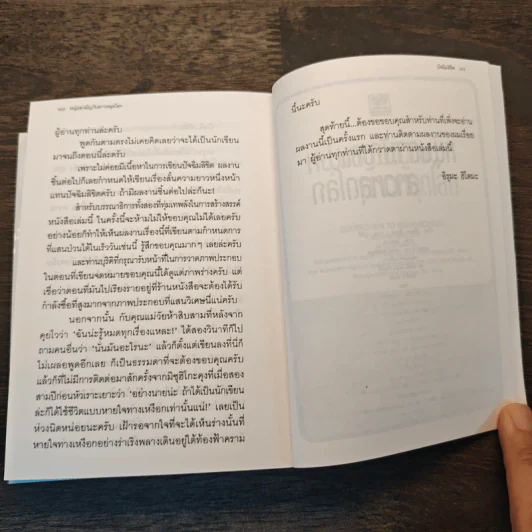 ผู้อ่านทุกท่านล่ะครับ
พูดกันตามตรงไม่เคยคิดเลยว่าจะได้เป็นนักเขียน
มาจนถึงตอนนี้ล่ะครับ
เพราะไม่ค่อยมีเนื้อหาในการเขียนปัจฉิมลิขิต ผลงาน
ชิ้นต่อไปก็เลยกำหนดให้เขียนเรื่องสั้นความยาวหนึ่งหน้า
แทนปัจฉิมลิขิตครับ ถ้ามีผลงานชิ้นต่อไปล่ะก็นะ!
สำหรับบรรณาธิการทั้งสองที่ทุ่มเทพลังในการสร้างสรรค์
หนังสือเล่มนี้ ในครั้งนี้จะห้ามไม่ให้ขอบคุณไม่ได้เลยครับ
อย่างน้อยก็ทำให้เห็นผลงานเรื่องนี้ที่เขียนตามกำหนดการ
ที่แสนป่วนได้ในเร็ววันเช่นนี้ รู้สึกขอบคุณมากๆ เลยล่ะครับ
และท่านบุริคิที่กรุณารับหน้าที่ในการวาดภาพประกอบ
ในตอนที่เขียนจดหมายขอบคุณนี้ได้ดูแต่ภาพร่างครับ แต่
เชื่อว่าตอนที่มันไปเรียงรายอยู่ที่ร้านหนังสือจะต้องได้รับ
กำลังซื้อที่สูงมากจากภาพประกอบที่แสนวิเศษนี้แน่ครับ
นอกจากนั้น กับคุณแม่วัยห้าสิบสามที่หลังจาก
คุยโวว่า 'ฉันน่ะรู้หมดทุกเรื่องแหละ!' ได้สองวินาทีก็ไป
ถามคนอื่นว่า 'นั่นมันอะไรน่ะ' แล้วก็ตั้งแต่เขียนลงที่นี่ก็
ไม่เผลอพูดอีกเลย ก็เป็นธรรมดาที่จะต้องขอบคุณครับ
แล้วก็ที่ไม่มีการติดต่อมาสักครั้งจากมิซุฮิโกะคุงที่เมื่อสอง
สามปีก่อนหัวเราะเยาะว่า 'อย่างนายน่ะ ถ้าได้เป็นนักเขียน
ล่ะก็ได้ใช้ชีวิตแบบหายใจทางเหงือกเท่านั้นแน่!' เลยเป็น
ห่วงนิดหน่อยนะครับ เฝ้ารอจากใจที่จะได้เห็นร่างนั้นที่
หายใจทางเหงือกอย่างร่าเริงพลางเดินอยู่ใต้ท้องฟ้าคราม
นี้นะครับ
สุดท้ายนี้...ต้องขอขอบคุณสำหรับท่านที่เพิ่งจะอ่าน
ผลงานนี้เป็นครั้งแรก และท่านติดตามผลงานของผมเรื่อย
มา ผู้อ่านทุกท่านที่ได้กวาดตาอ่านหนังสือเล่มนี้ครับ